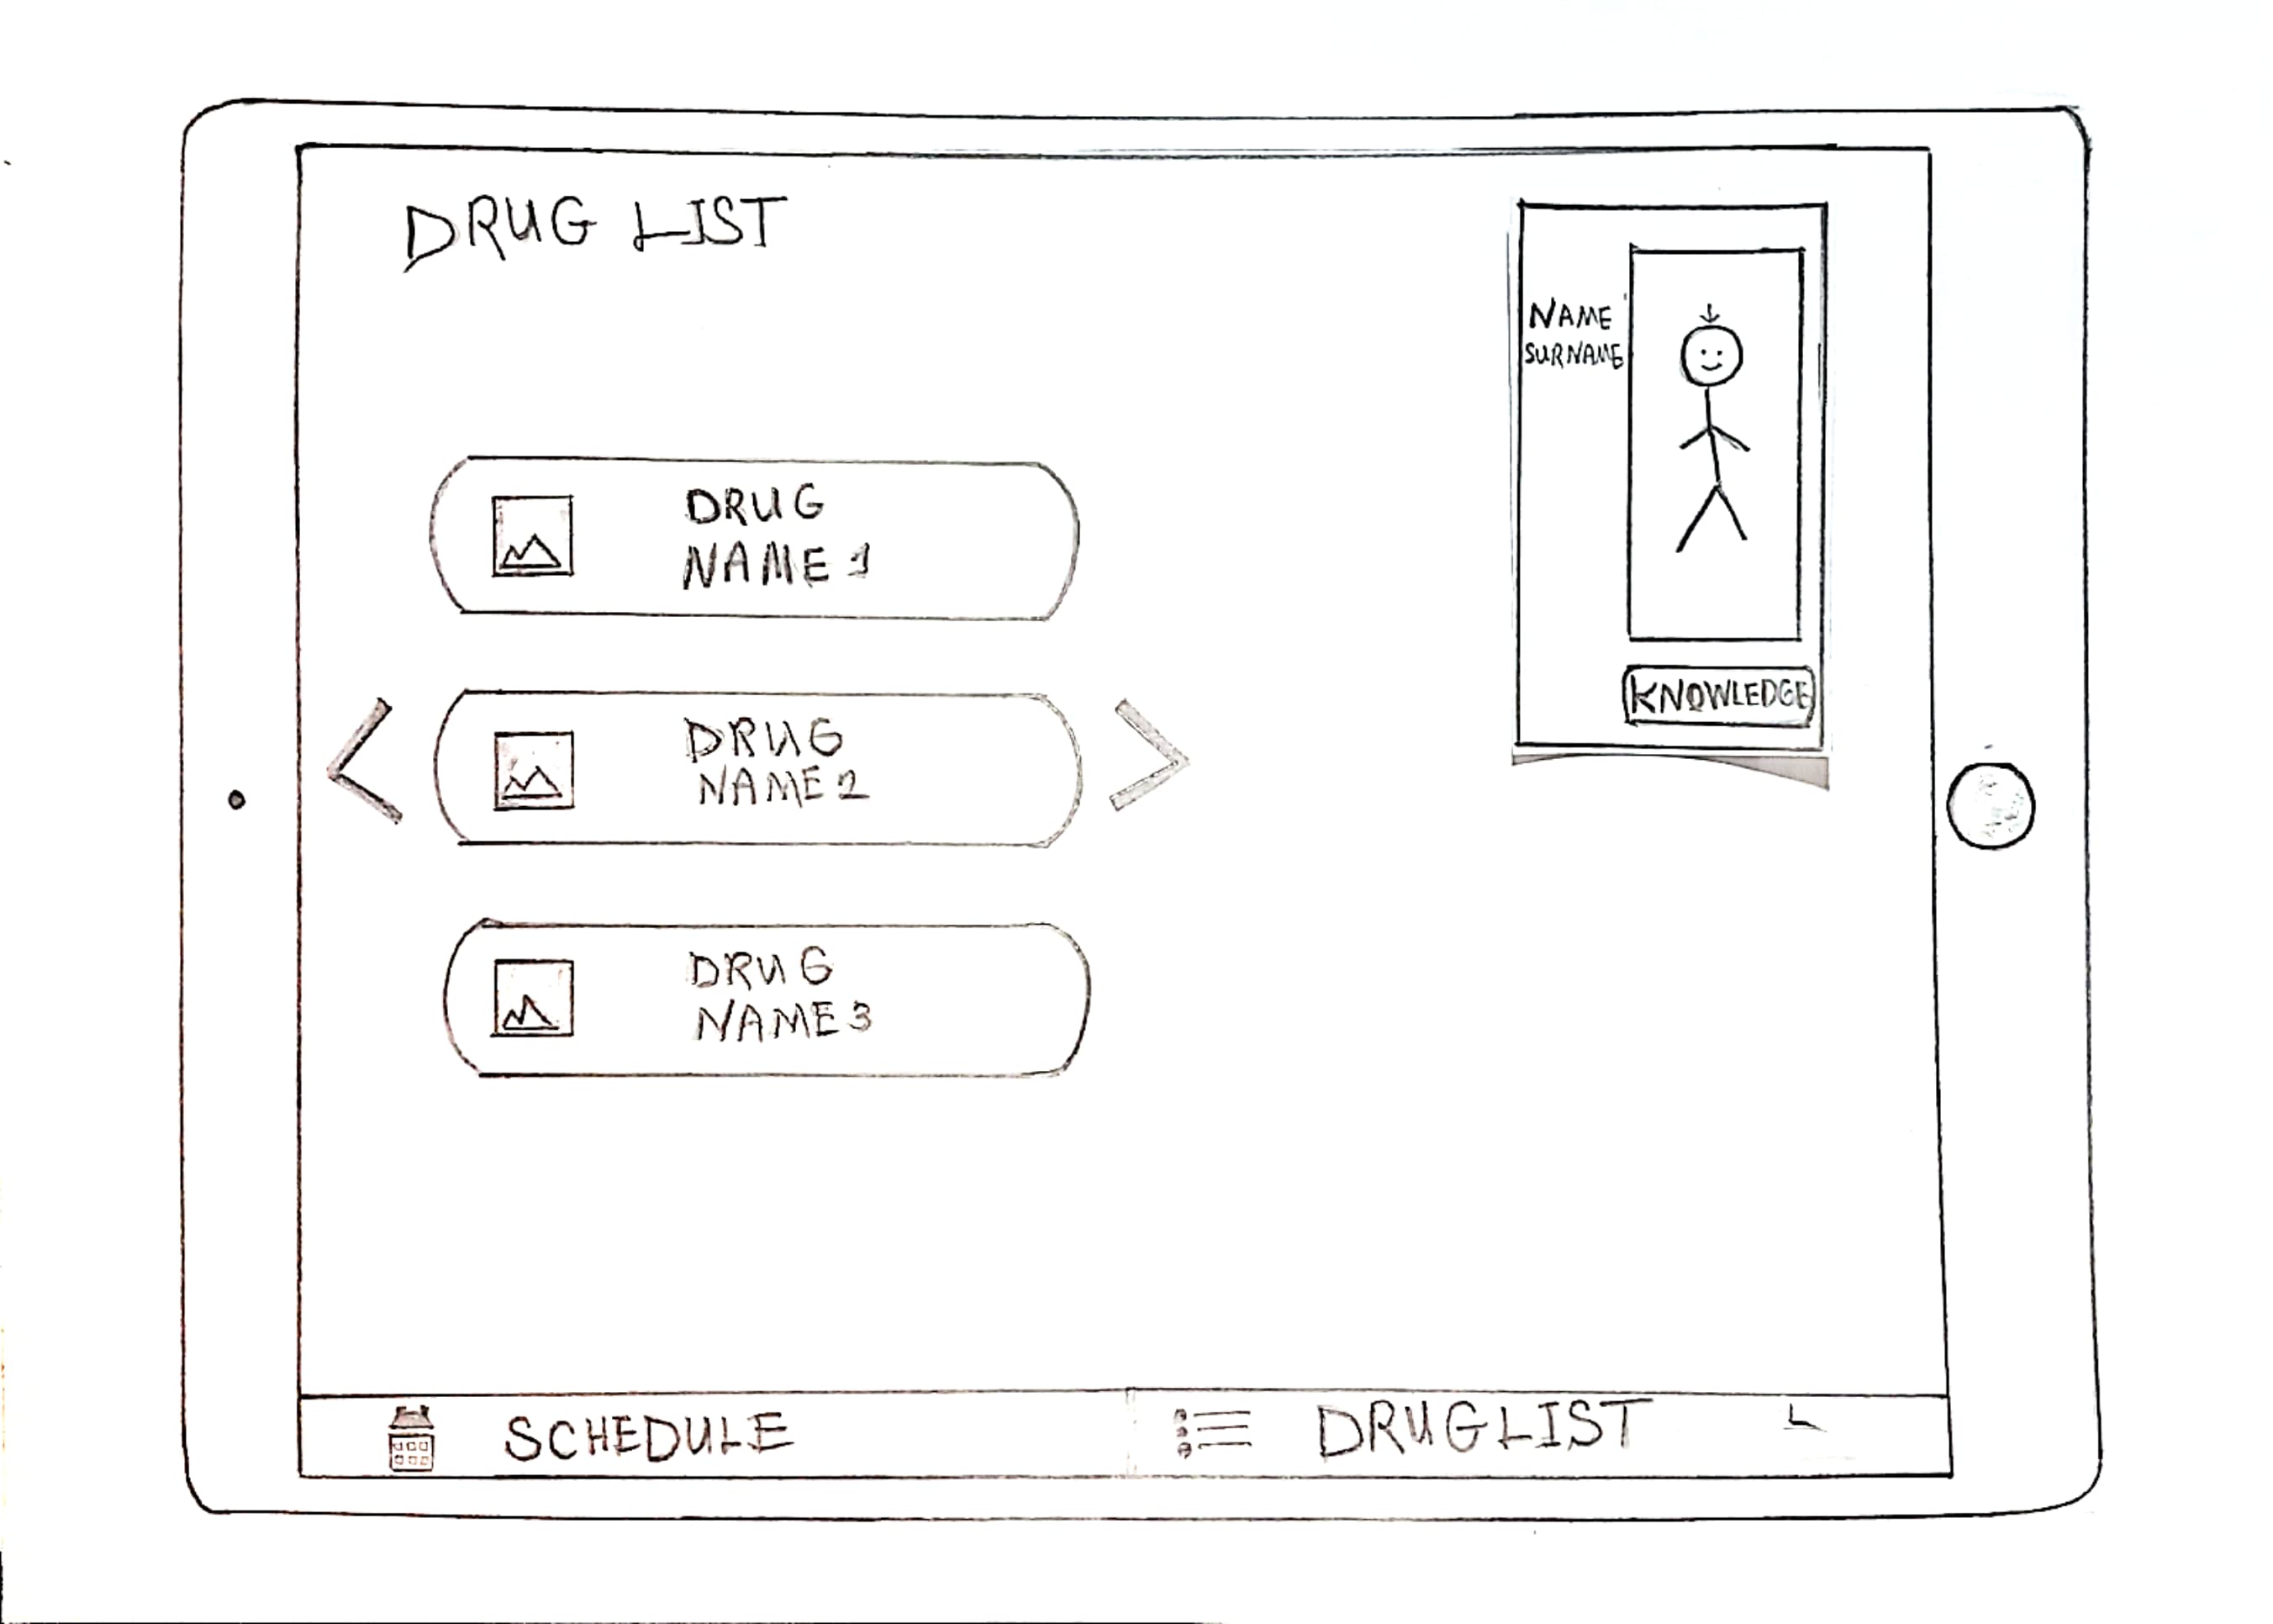 DRUG LIST
NAME
SURNAME
KNOWLEDGE
DRUG
NAME 1
DRUG
NAME 2
DRUG
NAME 3
SCHEDULE
DRUG LIST